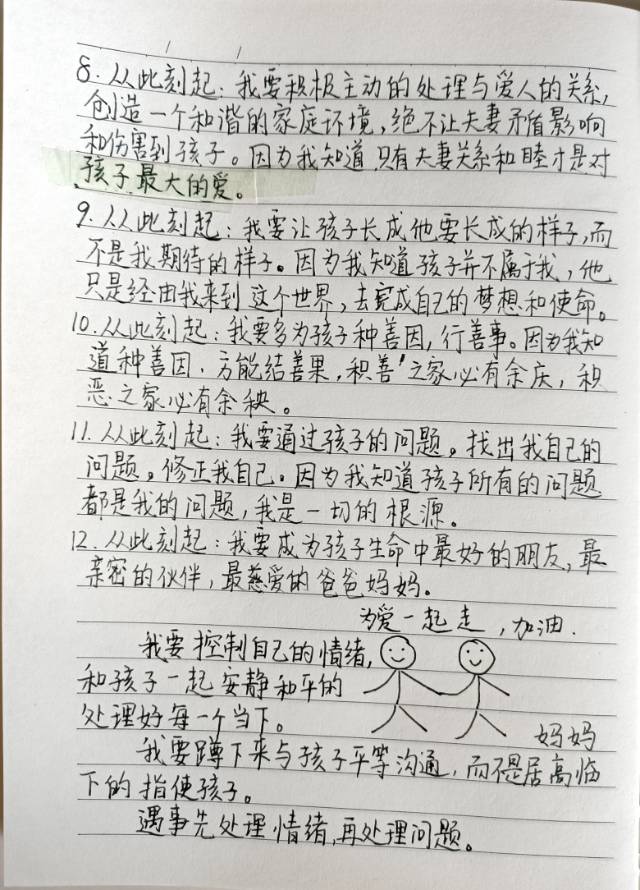 8. 从此刻起：我要积极主动的处理与爱人的关系，
创造一个和谐的家庭环境，绝不让夫妻矛盾影响
和伤害到孩子。因为我知道只有夫妻关系和睦才是对
孩子最大的爱。
9. 从从此刻起：我要让孩子长成他要长成的样子，而
不是我期待的样子。因为我知道孩子并不属于我，他
只是经由我来到这个世界，去完成自己的梦想和使命。
10. 从此刻起：我要多为孩子种善因，行善事。因为我知
道种善因，方能结善果，积善之家必有余庆，积
恶之家必有余秧。
11. 从此刻起：我要通过孩子的问题。找出我自己的
问题。修正我自己。因为我知道孩子所有的问题
都是我的问题，我是一切的根源。
12. 从此刻起：我要成为孩子生命中最好的朋友，最
亲密的伙伴，最慈爱的爸爸妈妈。
为爱一起走，加油.
我要控制自己的情绪，
和孩子一起安静和平的
处理好每一个当下。
妈妈
我要蹲下来与孩子平等沟通，而不是居高临
下的指使孩子。
遇事先处理情绪，再处理问题。